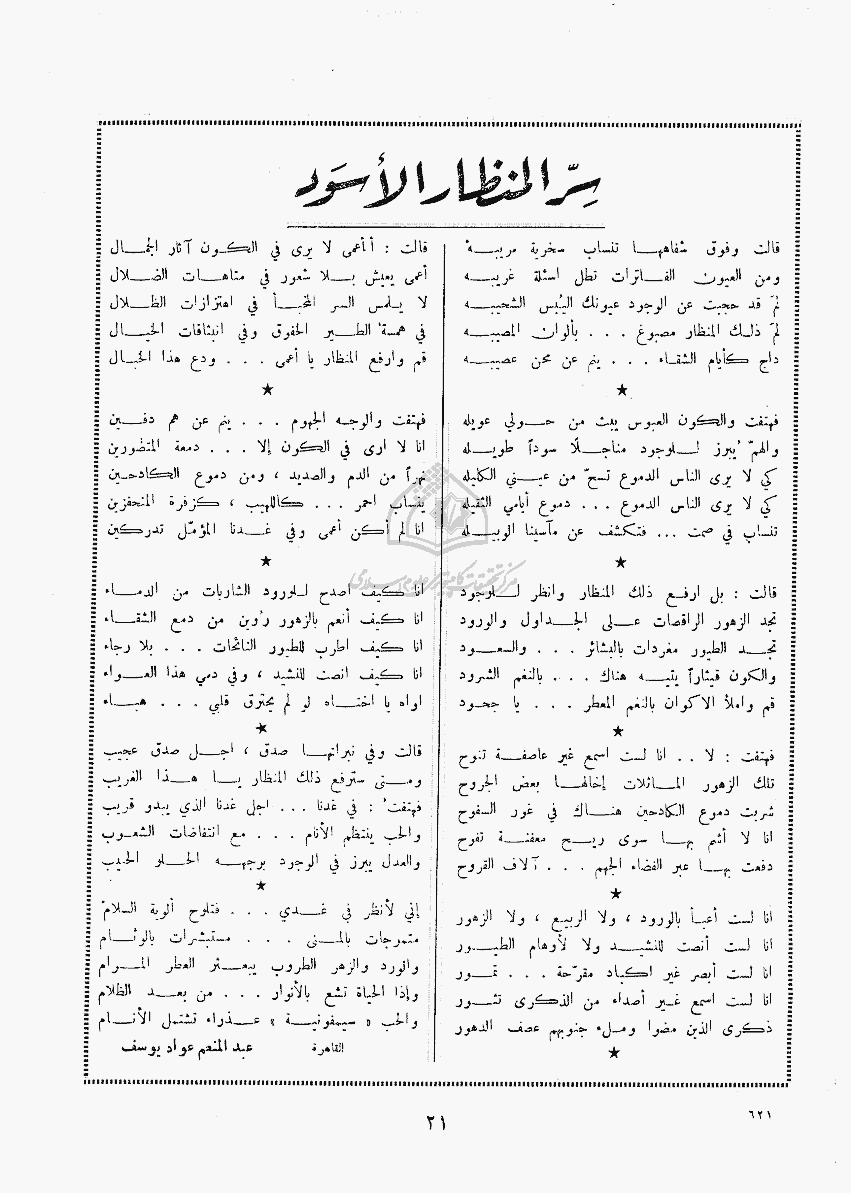 سِرّ المنظار الأسوَد
قالت وفوق شفاههـا تنساب سخرية مريبـه
ومن العيون الفـاترات تطل اسئلة غريبـه
لمَ قد حجبت عن الوجود عيونك اليُبْس الشحيبـه
لمَ ذلـك المنظار مصبوغ . . . بألوان المصيبـه
داج كأيام الشقـاء . . . ينم عن محن عصيبـه
★
فهتفت والكون العبوس يبث من حـولي عويله
والهمّ يُبرز للـوجود مناجـلًا سوداً طويـله
كي لا يرى الناس الدموع تسحّ من عيـني الكليله
كي لا يرى الناس الدموع . . . دموع أيامي الثقيله
تنساب في صمت ... فتكشف عن مآسينا الوبيـله
★
قالت : بل ارفـع ذلك المنظار وانظر للـوجود
تجد الزهور الراقصات عـلى الجـداول والورود
تجـد الطيور مغردات بالبشائر . . . والسعـود
والكون قيثاراً يتيـه هناك . . . بالنغم الشرود
قم واملأ الاكوان بالنغم المعطر . . . يا جحـود
★
فهتفت : لا . . انا لست اسمع غير عاصفـة تنوح
تلك الزهور المـائلات إخالهـا بعض الجروح
شربت دموع الكادحين هنـاك في غور السفوح
انا لا أشم بهـا سوى ريـح معفنـة تفوح
دفعت بهـا عبر الفضاء الجهم . . . آلاف القروح
★
انا لست أعبـأ بالورود ، ولا الربيع ، ولا الزهور
انا لست أنصت للنشيـد ولا لأوهام الطيـور
انا لست أبصر غير اكباد مقرّحة . . . تمـور
انا لست اسمع غـير أصداء من الذكرى تثـور
ذكرى الذين مضوا ومـلء جنوبهم عصف الدهور
★
قالت : أأعمى لا يرى في الكـون آثار الجمـال
أعمى يعيش بـلا شعور في متاهـات الضـلال
لا يلـمس السر المخبـأ في اهتزازات الظـلال
في همسة الطـير الخفوق وفي انبثاقات الخيـال
قم وارفع المنظار يا أعمى . . . ودع هذا الخبال
★
فهتفت والوجـه الجهوم . . . ينم عن هم دفـين
انا لا ارى في الكون إلا . . . دمعة المتضورين
نهراً من الدم والصديد ، ومن دموع الكادحـين
ينساب احمر . . . كاللهيب ، كزفرة المتحفزين
انا لم أكن أعمى وفي غـدنا المؤمّل تدركين
★
انا كيف أصدح للـورود الشاربات من الدمـاء
انا كيف أنعم بالزهور رُوين من دمع الشقـاء
انا كيف اطرب للطيور النائحات . . . بلا رجاء
انا كيف انصت للنشيد ، وفي دمي هذا العـواء
اواه يا اختـاه لو لم يحترق قلبي . . . هبـاء
★
قالت وفي نبراتهـا صدق ، اجـل صدق عجيب
ومـتى سترفع ذلك المنظار يـا هـذا الغريب
فهتفت : في غدنا . . . اجل غدنا الذي يبدو قريب
والحب ينتظم الأنام . . . مع انتفاضات الشعـوب
والعدل يبرز في الوجود بوجهـه الحلـو الحبيب
★
إني لأنظر في غـدي . . . فتلوح ألوية السلام
متموجات بالمـنى . . . مستبشرات بالوئـام
والورد والزهر الطروب يبعـثر العطر المـرام
وإذا الحياة تشع بالأنوار . . . من بعـد الظلام
والحب « سيمفونيـة » عـذراء تشتمل الأنـام
القاهرة عبد المنعم عواد يوسف
مركز تحقيقات كامپيوتري علوم اسلامي
٢١
٦٢١